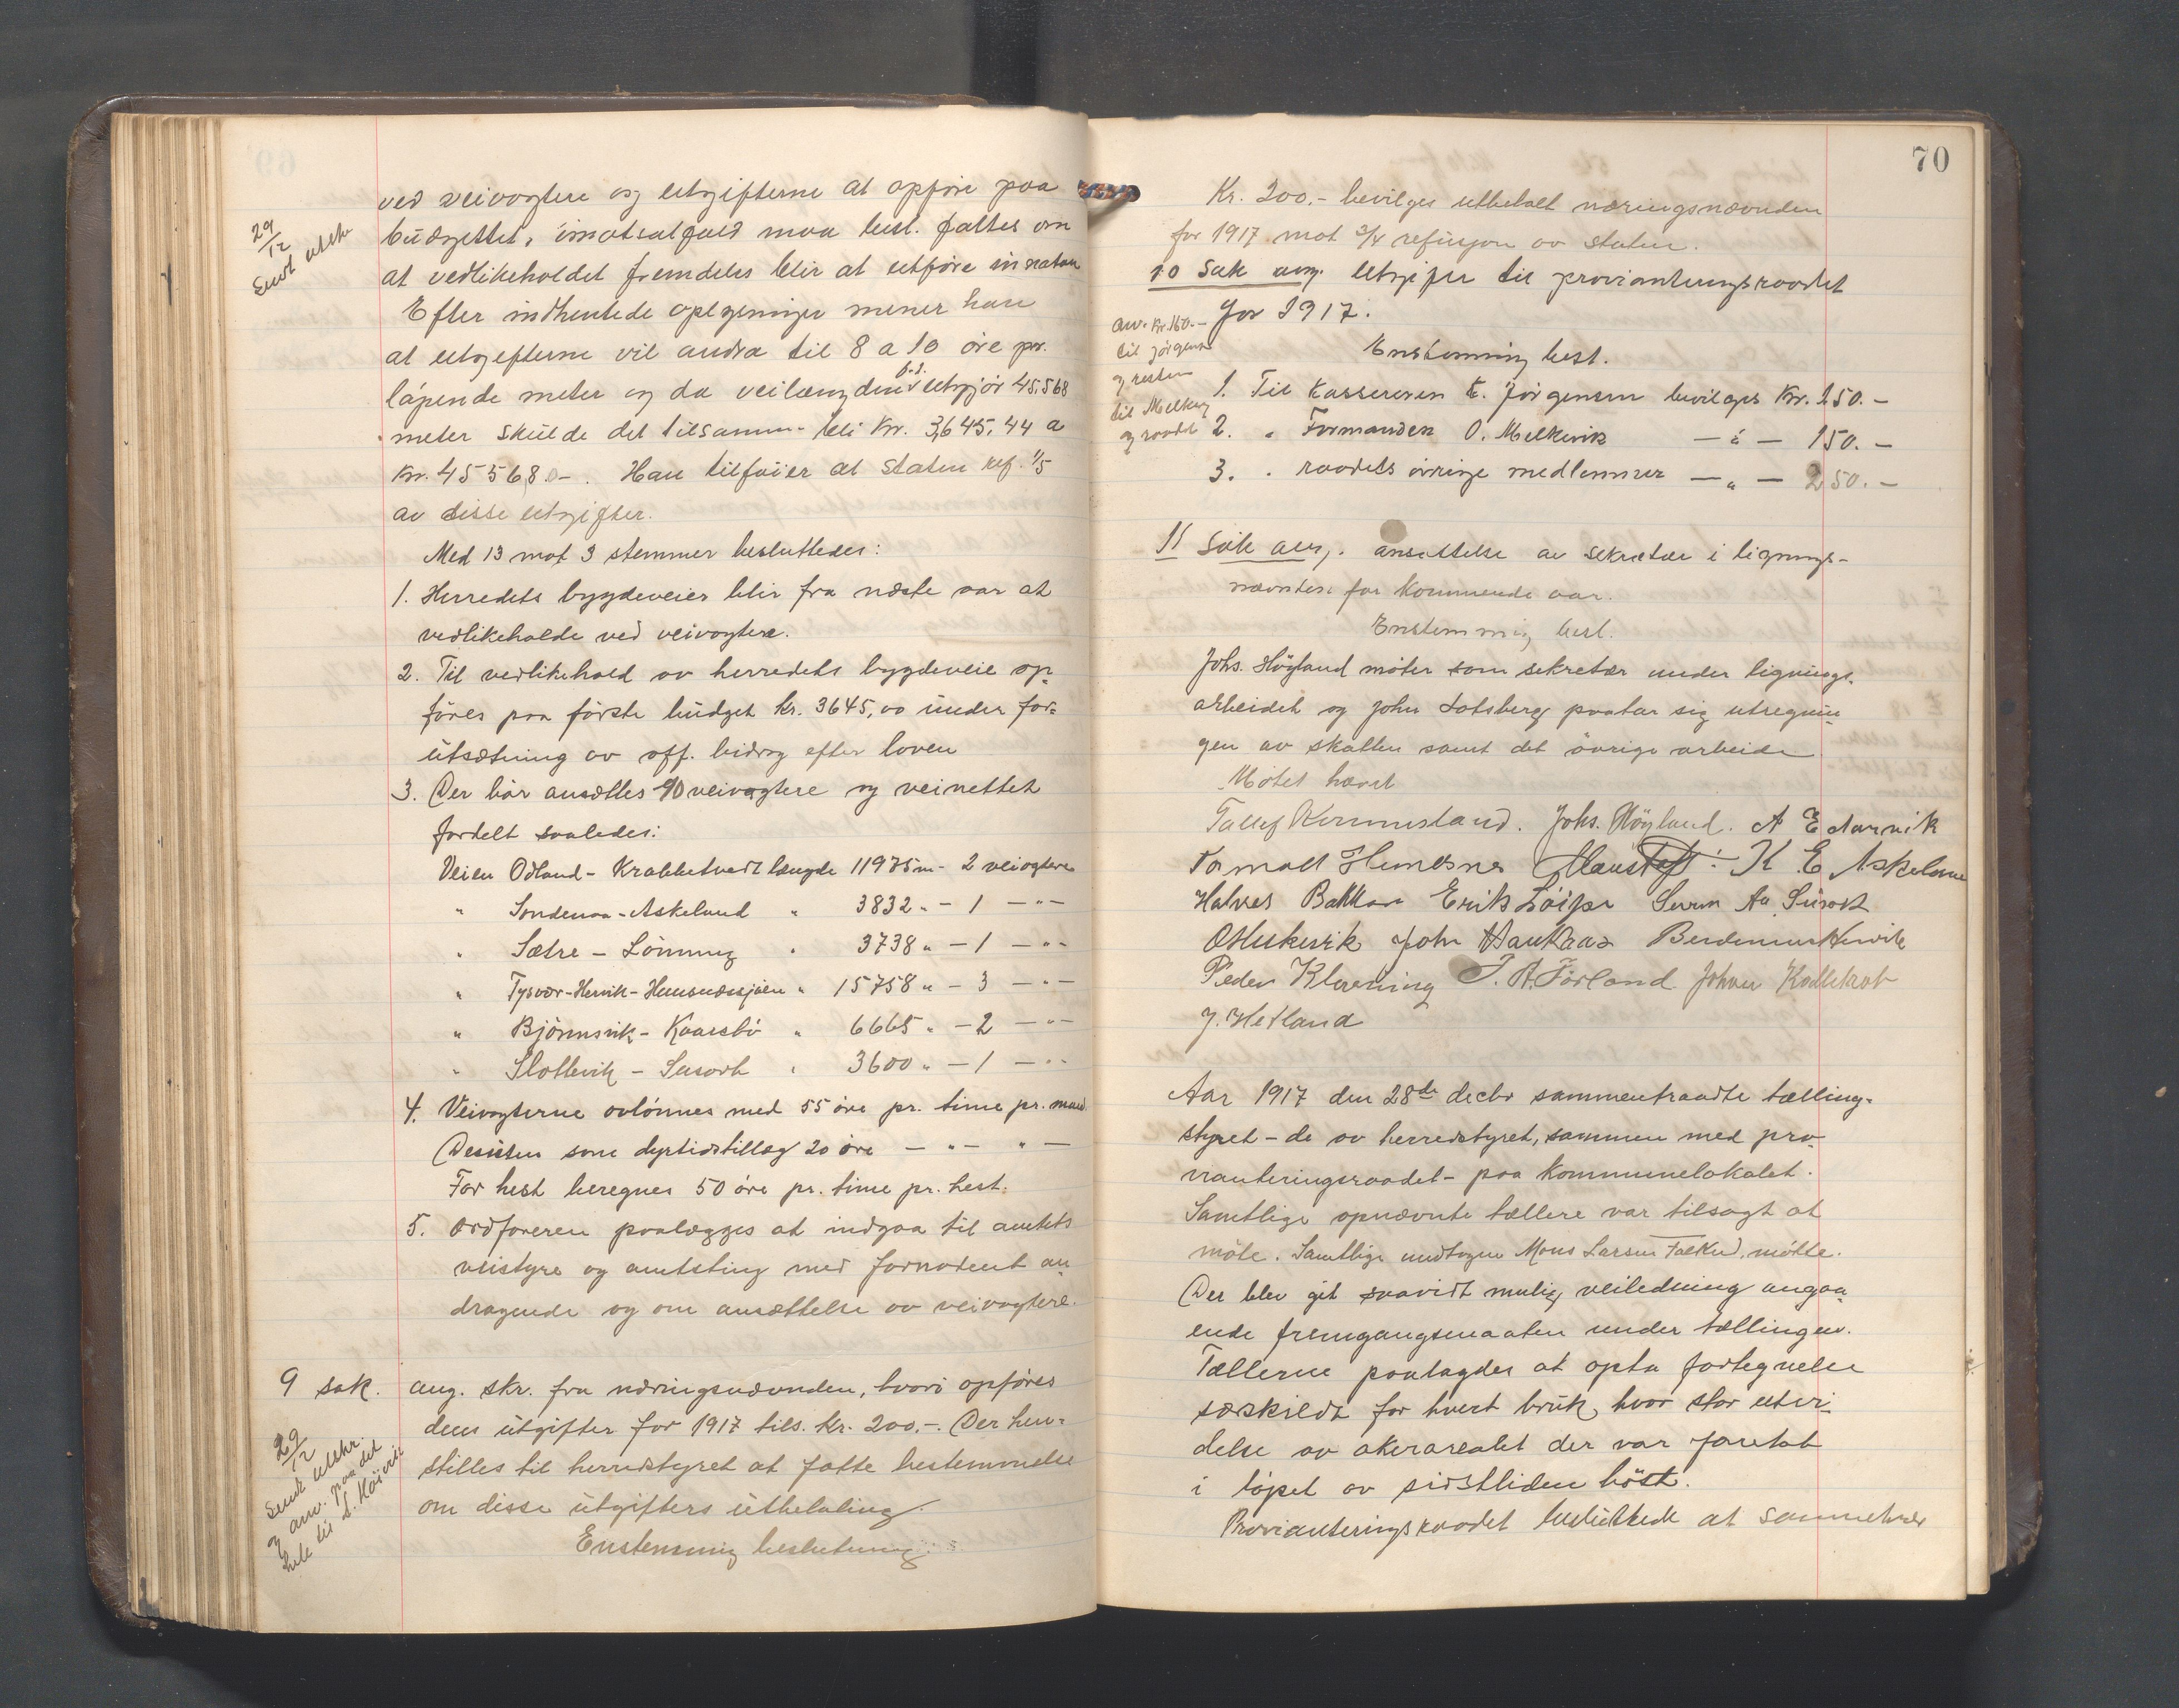 ved veivogtere og utgifterne at opføre paa
budgettet, imotsatfald maa besl. fattes om
at vedlikeholdet fremdeles blir at utføre in natura
Efter indhentede oplysninger mener han
at utgifterne vil andra til 8 a 10 øre pr.
løpende meter og da veilængden utgjør 45,568
meter skulde det tilsamm. bli Kr. 3,645,44 a
Kr. 45568.0-. Han tilføier at staten ref. 1/5
av disse utgifter.
Med 13 mot 3 stemmer besluttedes:
1. Herredets bygdeveier blir fra næste aar at
vedlikeholde ved veivogtere.
2. Til vedlikehold av herredets bygdeveie op-
føres paa første budget kr. 3645,00 under for-
utsætning av off. bidrag efter loven
3. Der bør ansættes 10 veivogtere og veinettet
fordelt saaledes:
Veien Odland - Krabbetvedt længde 11975 m - 2 veivogtere
" Søndenaa - Askeland " 3832 " - 1 - " -
" Sætre - Lønning " 3738 " - 1 - " -
" Tysvær - Hervik - Hemsnæssjøen " 15758 " - 3 - " -
" Bjørnsvik - Kaarsbø " 6665 " - 2 - " -
" Slottevik - Susort " 3600 " - 1 - " -
4. Veivogterne avlønnes med 55 øre pr. time pr. mand.
Desuten som dyrtidstillæg 20 øre - " - " -
For hest beregnes 50 øre pr. time pr. hest.
5. Ordføreren paalægges at indgaa til amtets
veistyre og amtsting med fornødent an-
dragende og om ansættelse av veivogtere.
29/12
Sendt utskr
9 sak. ang. skr. fra næringsnævnden, hvori opføres
dens utgifter for 1917 tils. kr. 200.-. Der hen-
stilles til herredstyret at fatte bestemmelse
om disse utgifters utbetaling.
Enstemmig beslutning:
29/12
Sendt utskr.
og anv. paa det
hele til
70
Kr. 200.- bevilges utbetalt næringsnævnden
for 1917 mot 3/4 refusjon av staten.
10 Sak ang. Utgifter til provianteringsraadet
for 1917.
Enstemmig besl.
anv. Kr. 160.-
til Jørgensen
og resten
til Melkevig
og raadet
1. Til Kassereren E. Jørgensen bevilges Kr. 250.-
2. " Formanden O. Melkevik - " - 150.-
3. " raadets øvrige medlemmer - " - 250.-
11 Sak ang. ansættelse av sekretær i lignings-
nævnden for kommende aar.
Enstemmig besl.
Johs. Høyland møter som sekretær under lignings-
arbeidet og John Lotsberg paatar sig utregnin-
gen av skatten samt det øvrige arbeide
Møtet hævet
Tallef Kinnesland. Johs. Høyland. A E Aarvik
Tormod Hemdsnes K. E. Askeland
Halvor Bakka Erik Løipe
O Melkevik John Haukaas Berdinius Hervik
Peder Klovning T. A. Førland Johan
J. Hetland
Aar 1917 den 28de decbr sammentraadte tælling-
styret - de av herredstyret, sammen med pro-
vianteringsraadet - paa Kommunelokalet.
Samtlige opnævnte tællere var tilsagt at
møte. Samtlige undtagen Mons Larsen Falkeid, møtte.
Der blev git saavidt mulig veiledning angaa-
ende fremgangsmaaten under tællingen.
Tællerne paalagdes at opta fortegnelse
særskildt for hvert bruk, hvor stor utvi-
delse av akerarealet der var foretat
i løpet av sidstliden høst.
Provianteringsraadet besluttede at